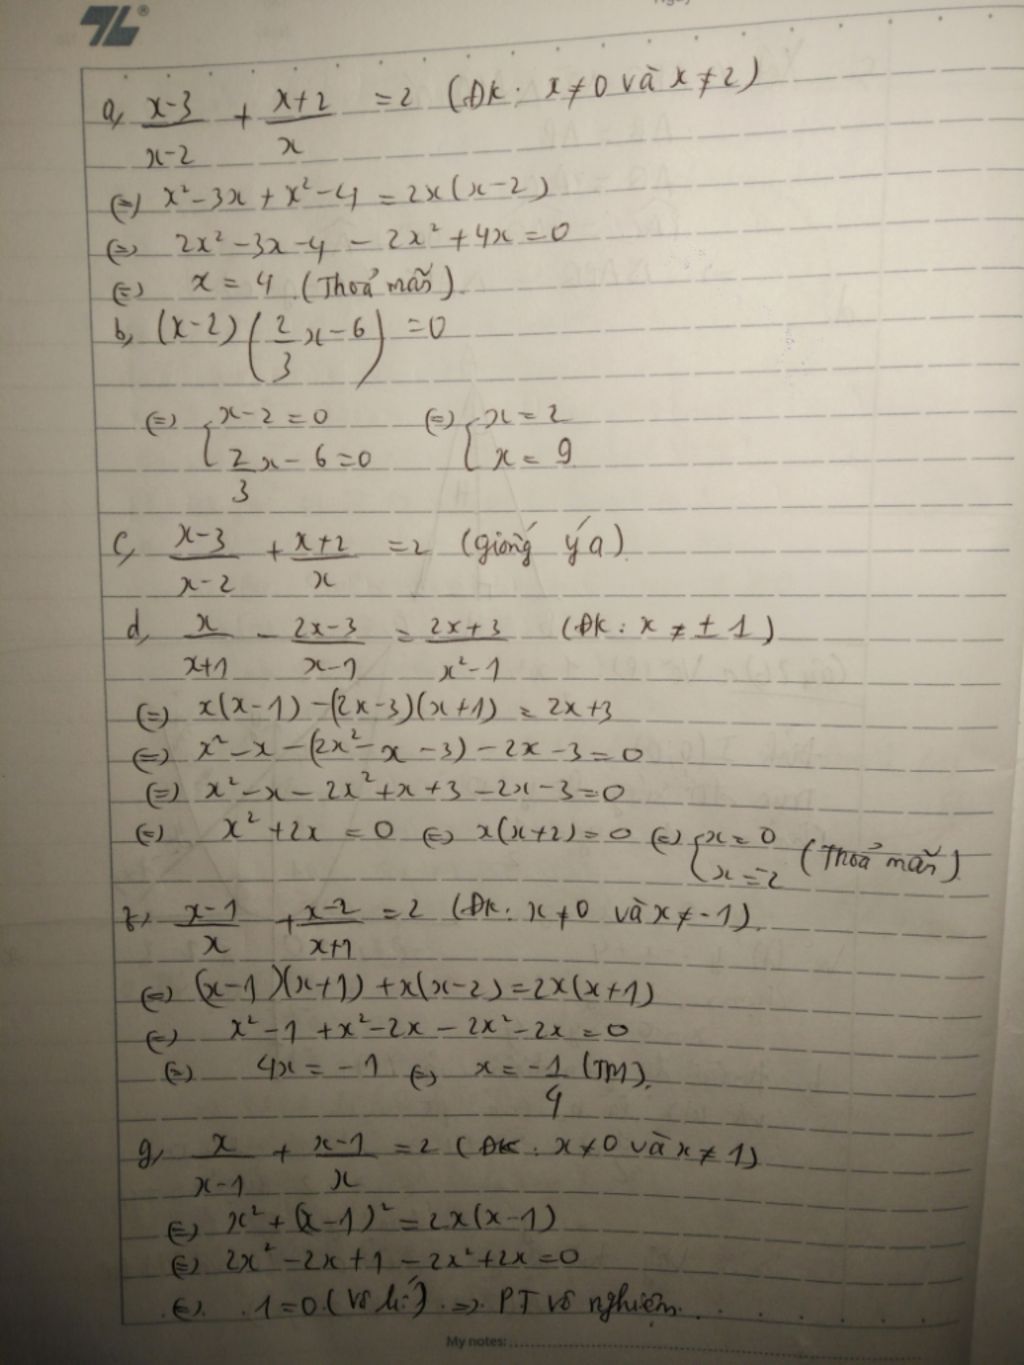 a, (x-3)/(x-2) + (x+2)/x = 2 (ĐK: x ≠ 0 và x ≠ 2)
(=) x² - 3x + x² - 4 = 2x(x-2)
(=) 2x² - 3x - 4 - 2x² + 4x = 0
(=) x = 4 (Thoả mãn).
b, (x-2)(2/3 x - 6) = 0
(=) { x - 2 = 0 (=) { x = 2
2/3 x - 6 = 0 x = 9
c, (x-3)/(x-2) + (x+2)/x = 2 (giống ý a)
d, x/(x+1) - (2x-3)/(x-1) = (2x+3)/(x²-1) (ĐK: x ≠ ±1)
(=) x(x-1) - (2x-3)(x+1) = 2x+3
(=) x² - x - (2x² - x - 3) - 2x - 3 = 0
(=) x² - x - 2x² + x + 3 - 2x - 3 = 0
(=) x² + 2x = 0 (=) x(x+2) = 0 (=) { x = 0 (Thoả mãn)
x = -2
f, (x-1)/x + (x-2)/(x+1) = 2 (ĐK: x ≠ 0 và x ≠ -1).
(=) (x-1)(x+1) + x(x-2) = 2x(x+1)
(=) x² - 1 + x² - 2x - 2x² - 2x = 0
(=) 4x = -1 (=) x = -1/4 (TM).
g, x/(x-1) + (x-1)/x = 2 (ĐK: x ≠ 0 và x ≠ 1)
(=) x² + (x-1)² = 2x(x-1)
(=) 2x² - 2x + 1 - 2x² + 2x = 0
(=) 1 = 0 (Vô lí) => PT vô nghiệm.
My notes: